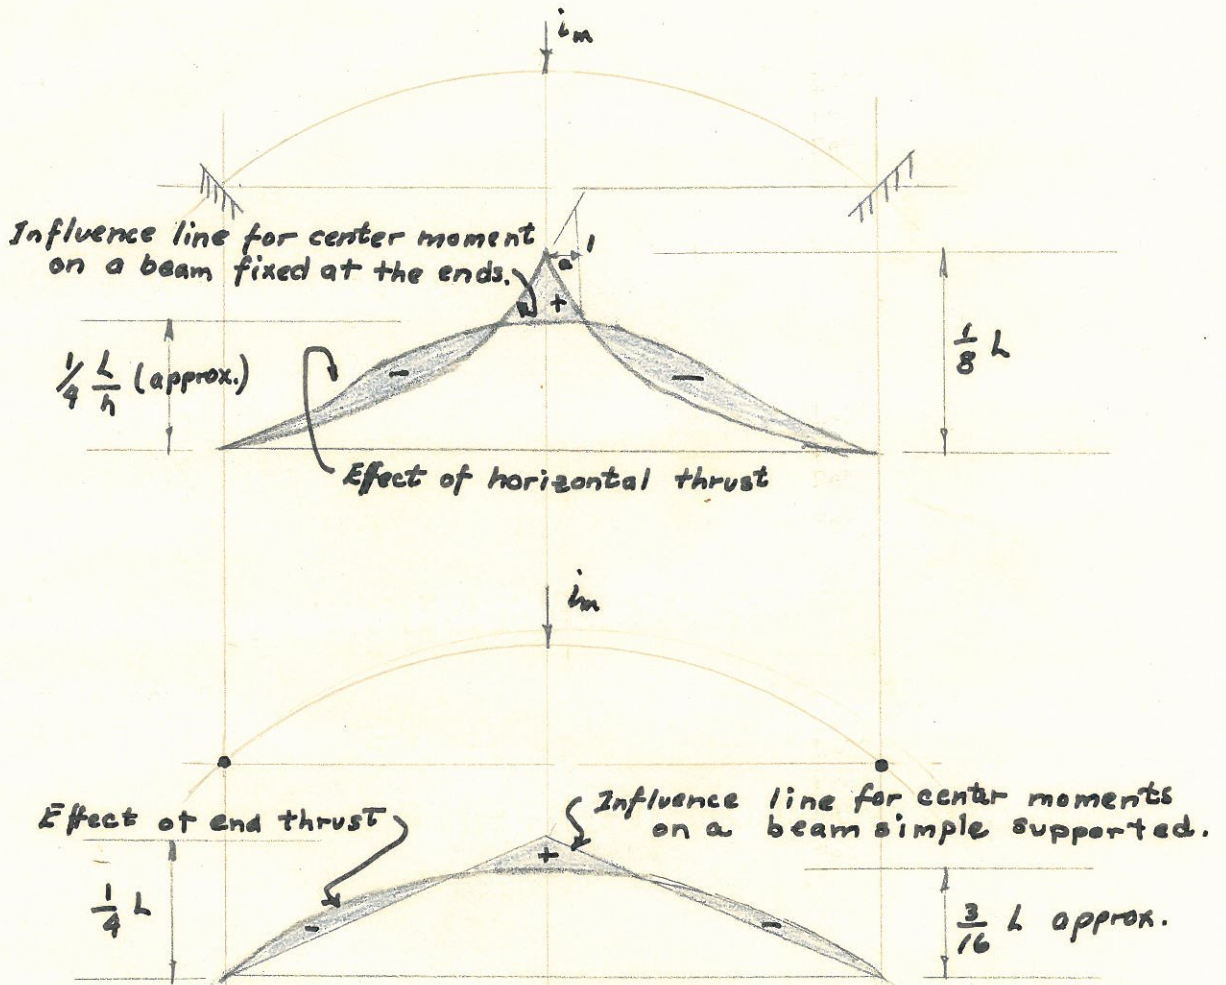 im
Influence line for center moment
on a beam fixed at the ends.
1
a
+
1/4 L/h (approx.)
-
-
1/8 L
Effect of horizontal thrust
im
Effect of end thrust
Influence line for center moments
on a beam simple supported.
+
1/4 L
-
-
3/16 L approx.